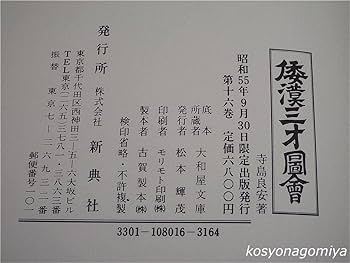 倭漢三才圖會
寺島良安著
昭和55年9月30日限定出版発行
第十六巻 定価六八〇〇円
底本 大和屋文庫
所蔵者
発行者 松本輝茂
印刷者 モリモト印刷(株)
製本者 古賀製本(株)
検印省略・不許複製
発行所 株式会社 新典社
東京都千代田区西神田三―五―六大坂ビル
TEL東京(二六五)三七八一・三八六三番
振替 東京 七―二六九三二番
郵便番号一〇一
3301-108016-3164
kosyonagomiya